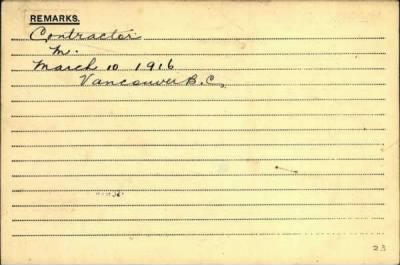 REMARKS.
Contractor
M.
March 10 1916
Vancouver B.C.
23